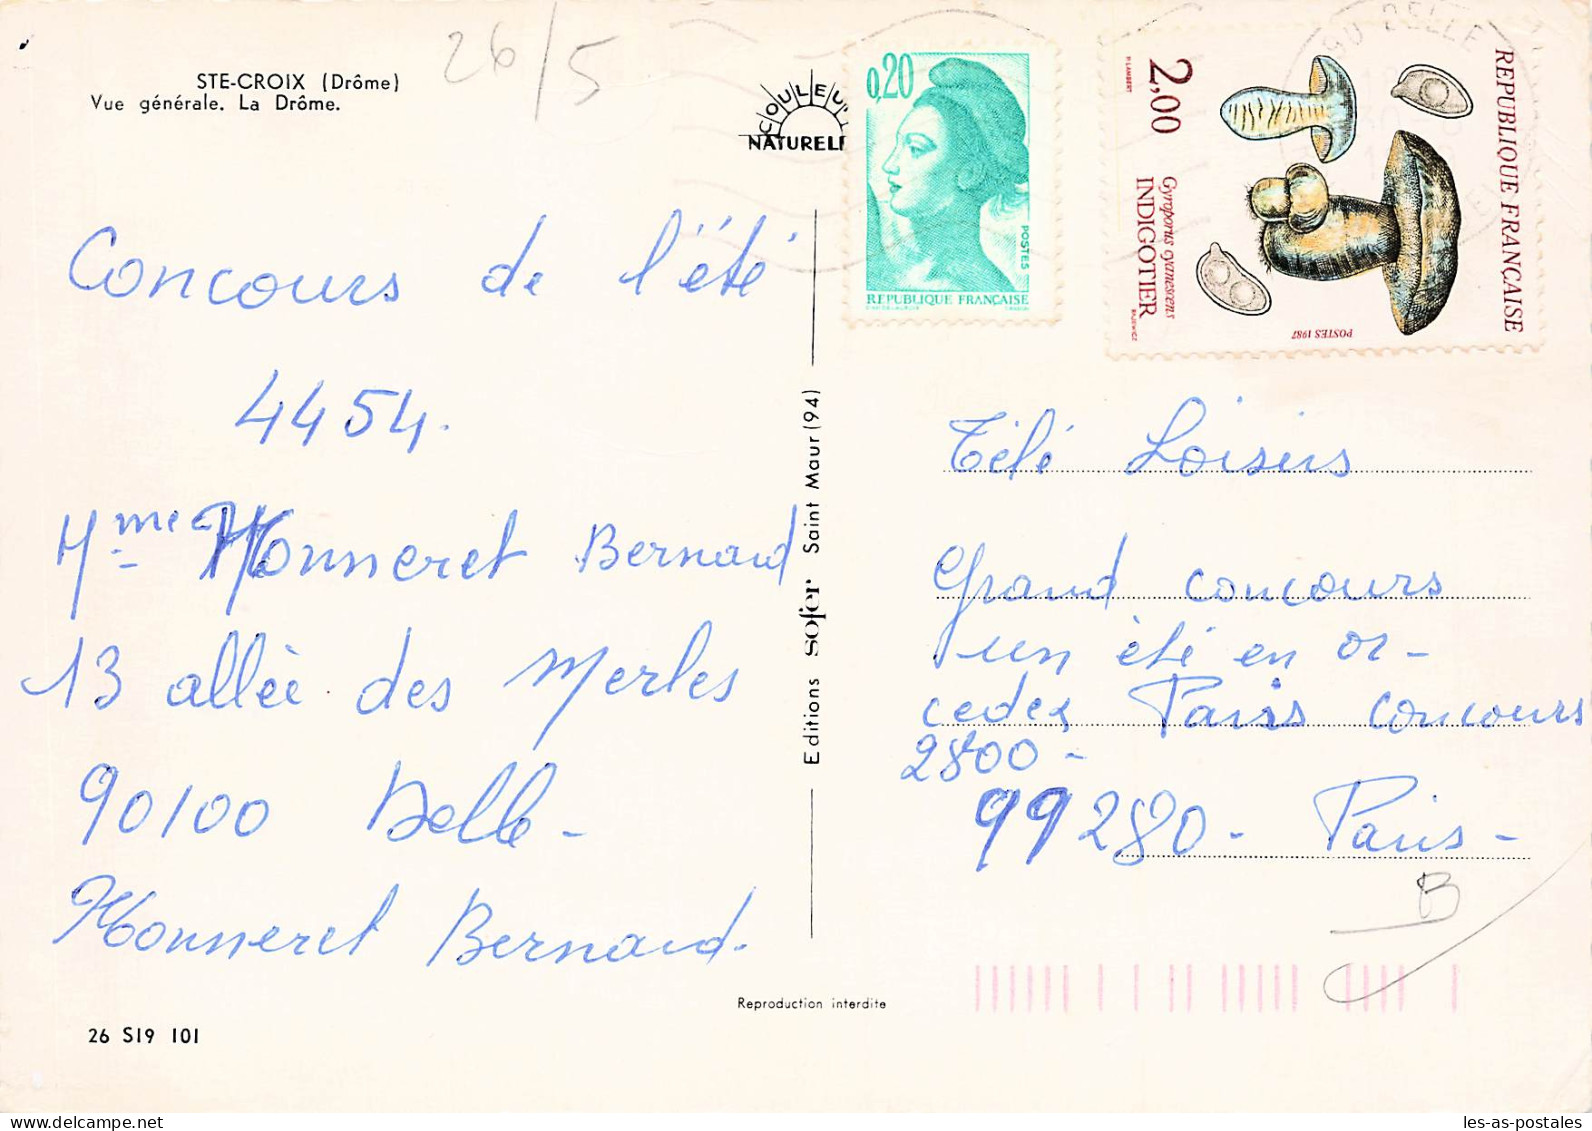 STE-CROIX (Drôme)
Vue générale. La Drôme.
26/5
COULEU
NATUREL
0,20
POSTES
REPUBLIQUE FRANÇAISE
2,00
REPUBLIQUE FRANÇAISE
Gyroporus cyanescens
INDIGOTIER
POSTES 1987
90 DELLE
Concours de l'été
4454.
Mme Monneret Bernard
13 allée des Merles
90100 Delle -
Monneret Bernard.
Editions sofer Saint Maur (94)
Télé Loisirs
Grand concours
un été en or -
cedex Paris concours
2800 -
99280 - Paris -
B
Reproduction interdite
26 S19 101
les-as-postales